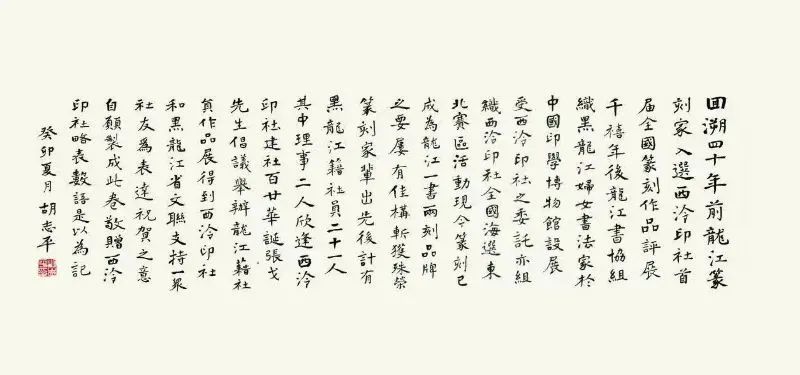 回溯四十年前龍江篆
刻家入選西泠印社首
届全國篆刻作品評展
千禧年後龍江書協組
織黑龍江婦女書法家於
中國印學博物館設展
受西泠印社之委託亦組
織西泠印社全國海選東
北賽區活動現今篆刻已
成為龍江一書兩刻品牌
之要屢有佳構斬獲殊榮
篆刻家輩出先後計有
黑龍江籍社員二十一人
其中理事二人欣逢西泠
印社建社百廿華誕張戈
先生倡議舉辦龍江籍社
員作品展得到西泠印社
和黑龍江省文聯支持一眾
社友為表達祝賀之意
自願製成此卷敬贈西泠
印社略表數語是以為記
癸卯夏月 胡志平